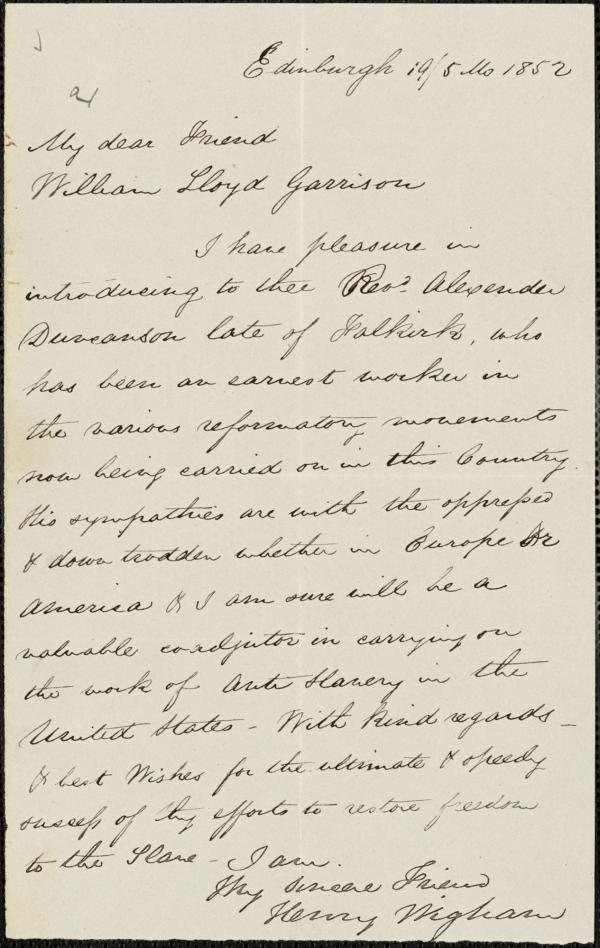 Edinburgh 19/5 Mo 1852
My dear Friend
William Lloyd Garrison
I have pleasure in
introducing to thee Revd. Alexander
Duncanson late of Falkirk, who
has been an earnest worker in
the various reformatory movements
now being carried on in this Country.
His sympathies are with the oppressed
& down trodden whether in Europe or
America & I am sure will be a
valuable coadjutor in carrying on
the work of Anti Slavery in the
United States - With kind regards -
& best Wishes for the ultimate & speedy
success of thy efforts to restore freedom
to the Slave - I am.
Thy Sincere Friend
Henry Wigham